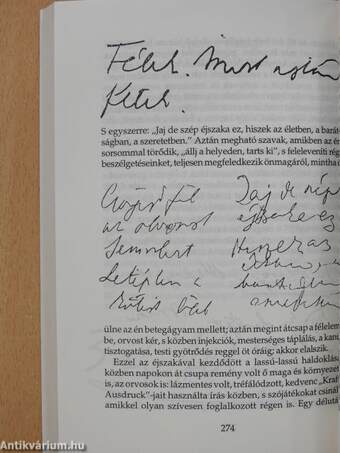 Félek. Most aztán
félek.
S egyszerre: „Jaj de szép éjszaka ez, hiszek az életben, a barát-
ságban, a szeretetben.” Aztán megható szavak, amikben az én
sorsommal törődik, „állj a helyeden, tarts ki”, s felelevenít rég
beszélgetéseinket, teljesen megfeledkezik önmagáról, mintha
az orvost
Jaj de szép
éjszaka ez
Hiszek az
ülne az én betegágyam mellett; aztán megint átcsap a félelem
be, orvost kér, s közben injekciók, mesterséges táplálás, a kani
tisztogatása, testi gyötrődés reggel öt óráig; akkor elalszik.
Ezzel az éjszakával kezdődött a lassú-lassú haldoklás;
közben napokon át csupa remény volt ő maga és környezet
is, az orvosok is: lázmentes volt, tréfálódzott, kedvenc „Kraft
Ausdruck”-jait használta írás közben, s szójátékokat csinál
amikkel olyan szívesen foglalkozott régen is. Egy délutá
274
Antikvárium.hu